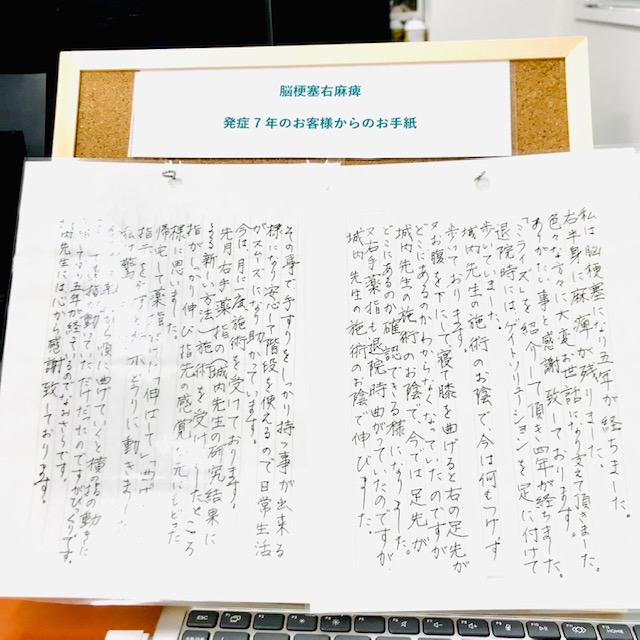 脳梗塞右麻痺
発症7年のお客様からのお手紙
私は脳梗塞になり五年が経ちました。
右半身に麻痺が残りました。
色々な方々に大変お世話になり支えて頂きました。
ありがたい事と感謝致しております。
「ミライズ」を紹介して頂き四年が経ちました。
退院時には、ゲイトソリューションを足に付けて
歩いていました。
城内先生の施術のお陰で、今は何もつけず
歩いております。
又お腹を下にして寝て膝を曲げると右の足先が
どこにあるのかわからなくなっていたのですが
城内先生の施術のお陰で、今では足先が
どこにあるのか確認できる様になりました。
又右手薬指も退院時曲がっていたのですが
城内先生の施術のお陰で伸びました
その事で手すりをしっかり持つ事が出来る
様になり安心して階段を使えるので日常生活
がスムーズになり助かっています。
今は、月に一度施術を受けております。
先月右手薬指の城内先生の研究結果に
よる新しい方法で施術を受けましたところ
指がしっかり伸び指先の感覚が元にもどった
様に思いました。
帰宅して薬指だけに「伸ばして」「曲げ
動きました
私は驚
順に曲げていくと
指も動いていただけだったのですがびっくりです。
五年が経ているのでなおさらです。
城内先生には心から感謝致しております。
ESC
F1
F2